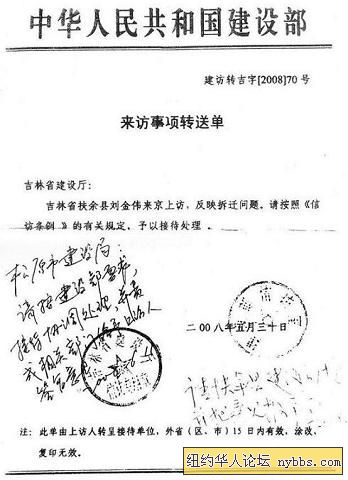 中华人民共和国建设部
建访转吉字[2008]70号
来访事项转送单
吉林省建设厅:
吉林省扶余县刘金伟来京上访,反映拆迁问题。请按照《信
访条例》的有关规定,予以接待处理。
松原市建设局:
请按建设部要求,
接待协调处理,并责
成相关部门
二00八年五月三十日
注:此单由上访人转呈接待单位,外省(区、市)15日内有效,涂改、
复印无效。
纽约华人论坛 nybbs.com